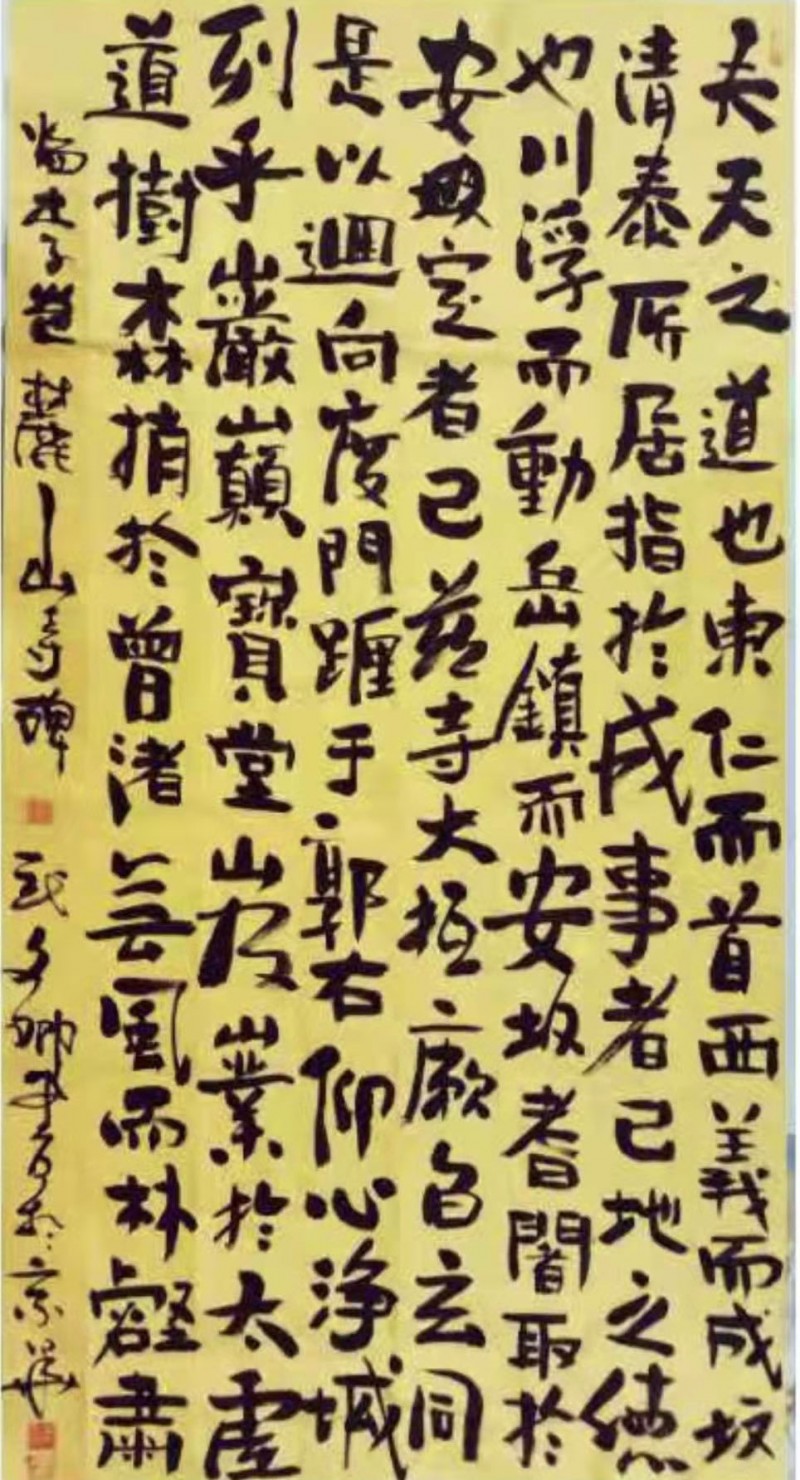 夫天之道也東仁而首西義而成故
清泰所居指於成事者已地之德
也川浮而動岳鎮而安故耆闍取於
安定者已茲寺大抵厥旨玄同
是以迴向度門躔于郭右仰心淨域
列乎巖巔寶堂岌嶪於太虛
道樹森捎於曾渚無風而林壑肅
李邕麓山寺碑 於京華